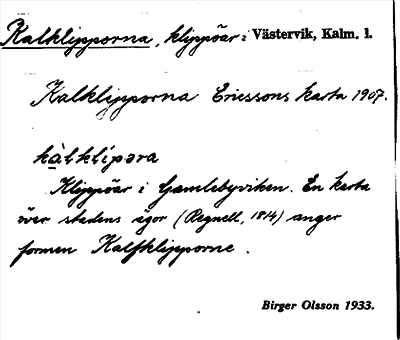 Kalklipporna, klippöar i Västervik, Kalm. l.
Kalklipporna Ericssons karta 1907.
kàlklípəra
Klippöar i Gamlebyviken. En karta
över stadens ägor (Regnell, 1814) anger
formen Kalfklipporne.
Birger Olsson 1933.